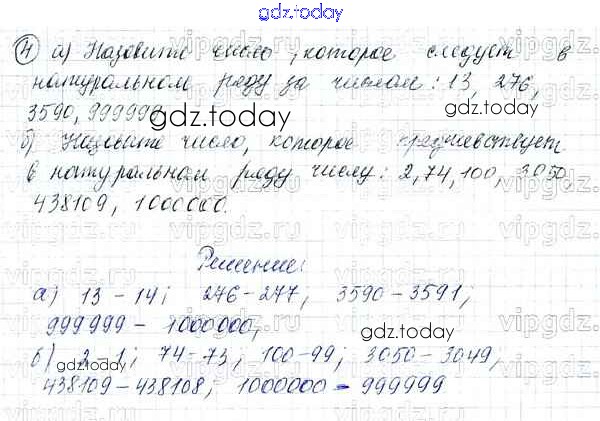 gdz.today
4) а) Назовите число, которое следует в
натуральном ряду за числом: 13, 276,
3590, 999999
gdz.today
б) Назовите число, которое предшествует
в натуральном ряду числу: 2, 74, 100, 3050,
438109, 1000000.
Решение:
а) 13 – 14; 276 – 277; 3590 – 3591;
999999 – 1000000;
gdz.today
б) 2 – 1; 74 – 73; 100 – 99; 3050 – 3049;
gdz.today
438109 – 438108; 1000000 – 999999
gdz.today
vipgdz.ru